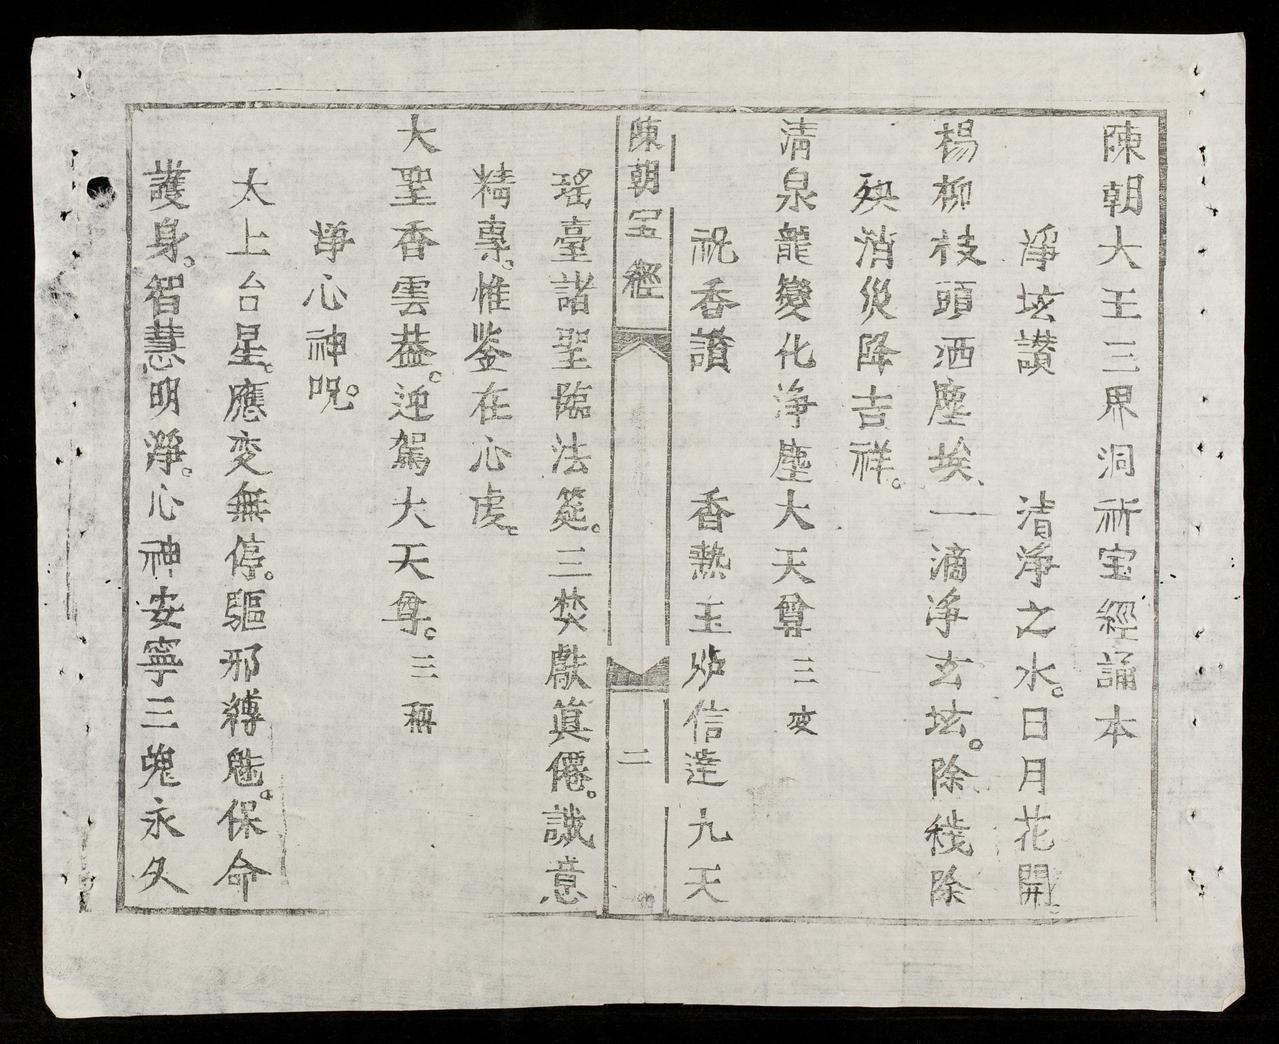 陳朝大王三界洞祈宝經誦本
淨坛讃　清浄之水。日月花開。
楊柳枝頭洒塵埃、一滴浄玄坛。除秽除
殃消災降吉祥。
清泉龍變化浄塵大天尊三变
祝香讃　香熱玉炉信達九天
陳朝宝經　二
瑤臺諸聖臨法筵。三焚獻眞僊。誠意
精專。惟鉴在心虔。
大聖香雲蓋。迎駕大天尊。三称
淨心神呪。
太上台星。應变無停。驅邪縛魅。保命
護身。智慧明淨。心神安寧三魂永久